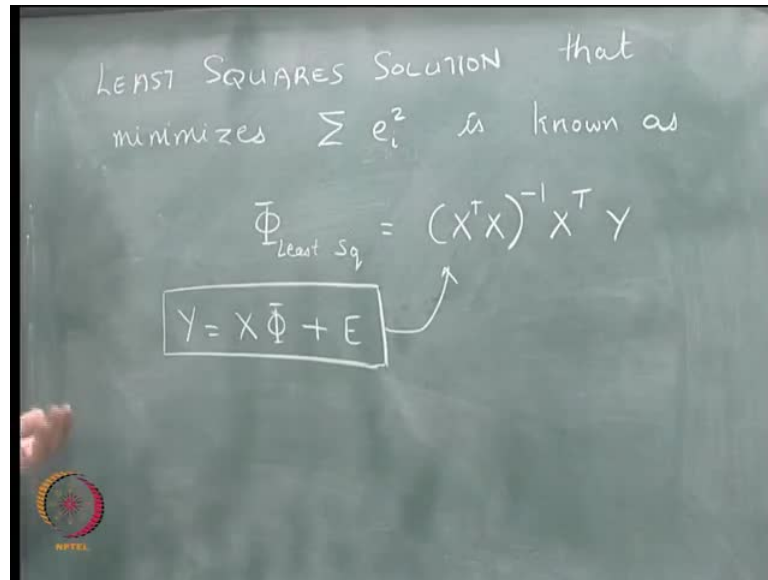 LEAST SQUARES SOLUTION that
minimizes Σ eᵢ² is known as
Φ̄ Least Sq = (XᵀX)⁻¹ Xᵀ Y
Y = X Φ̄ + E
NPTEL